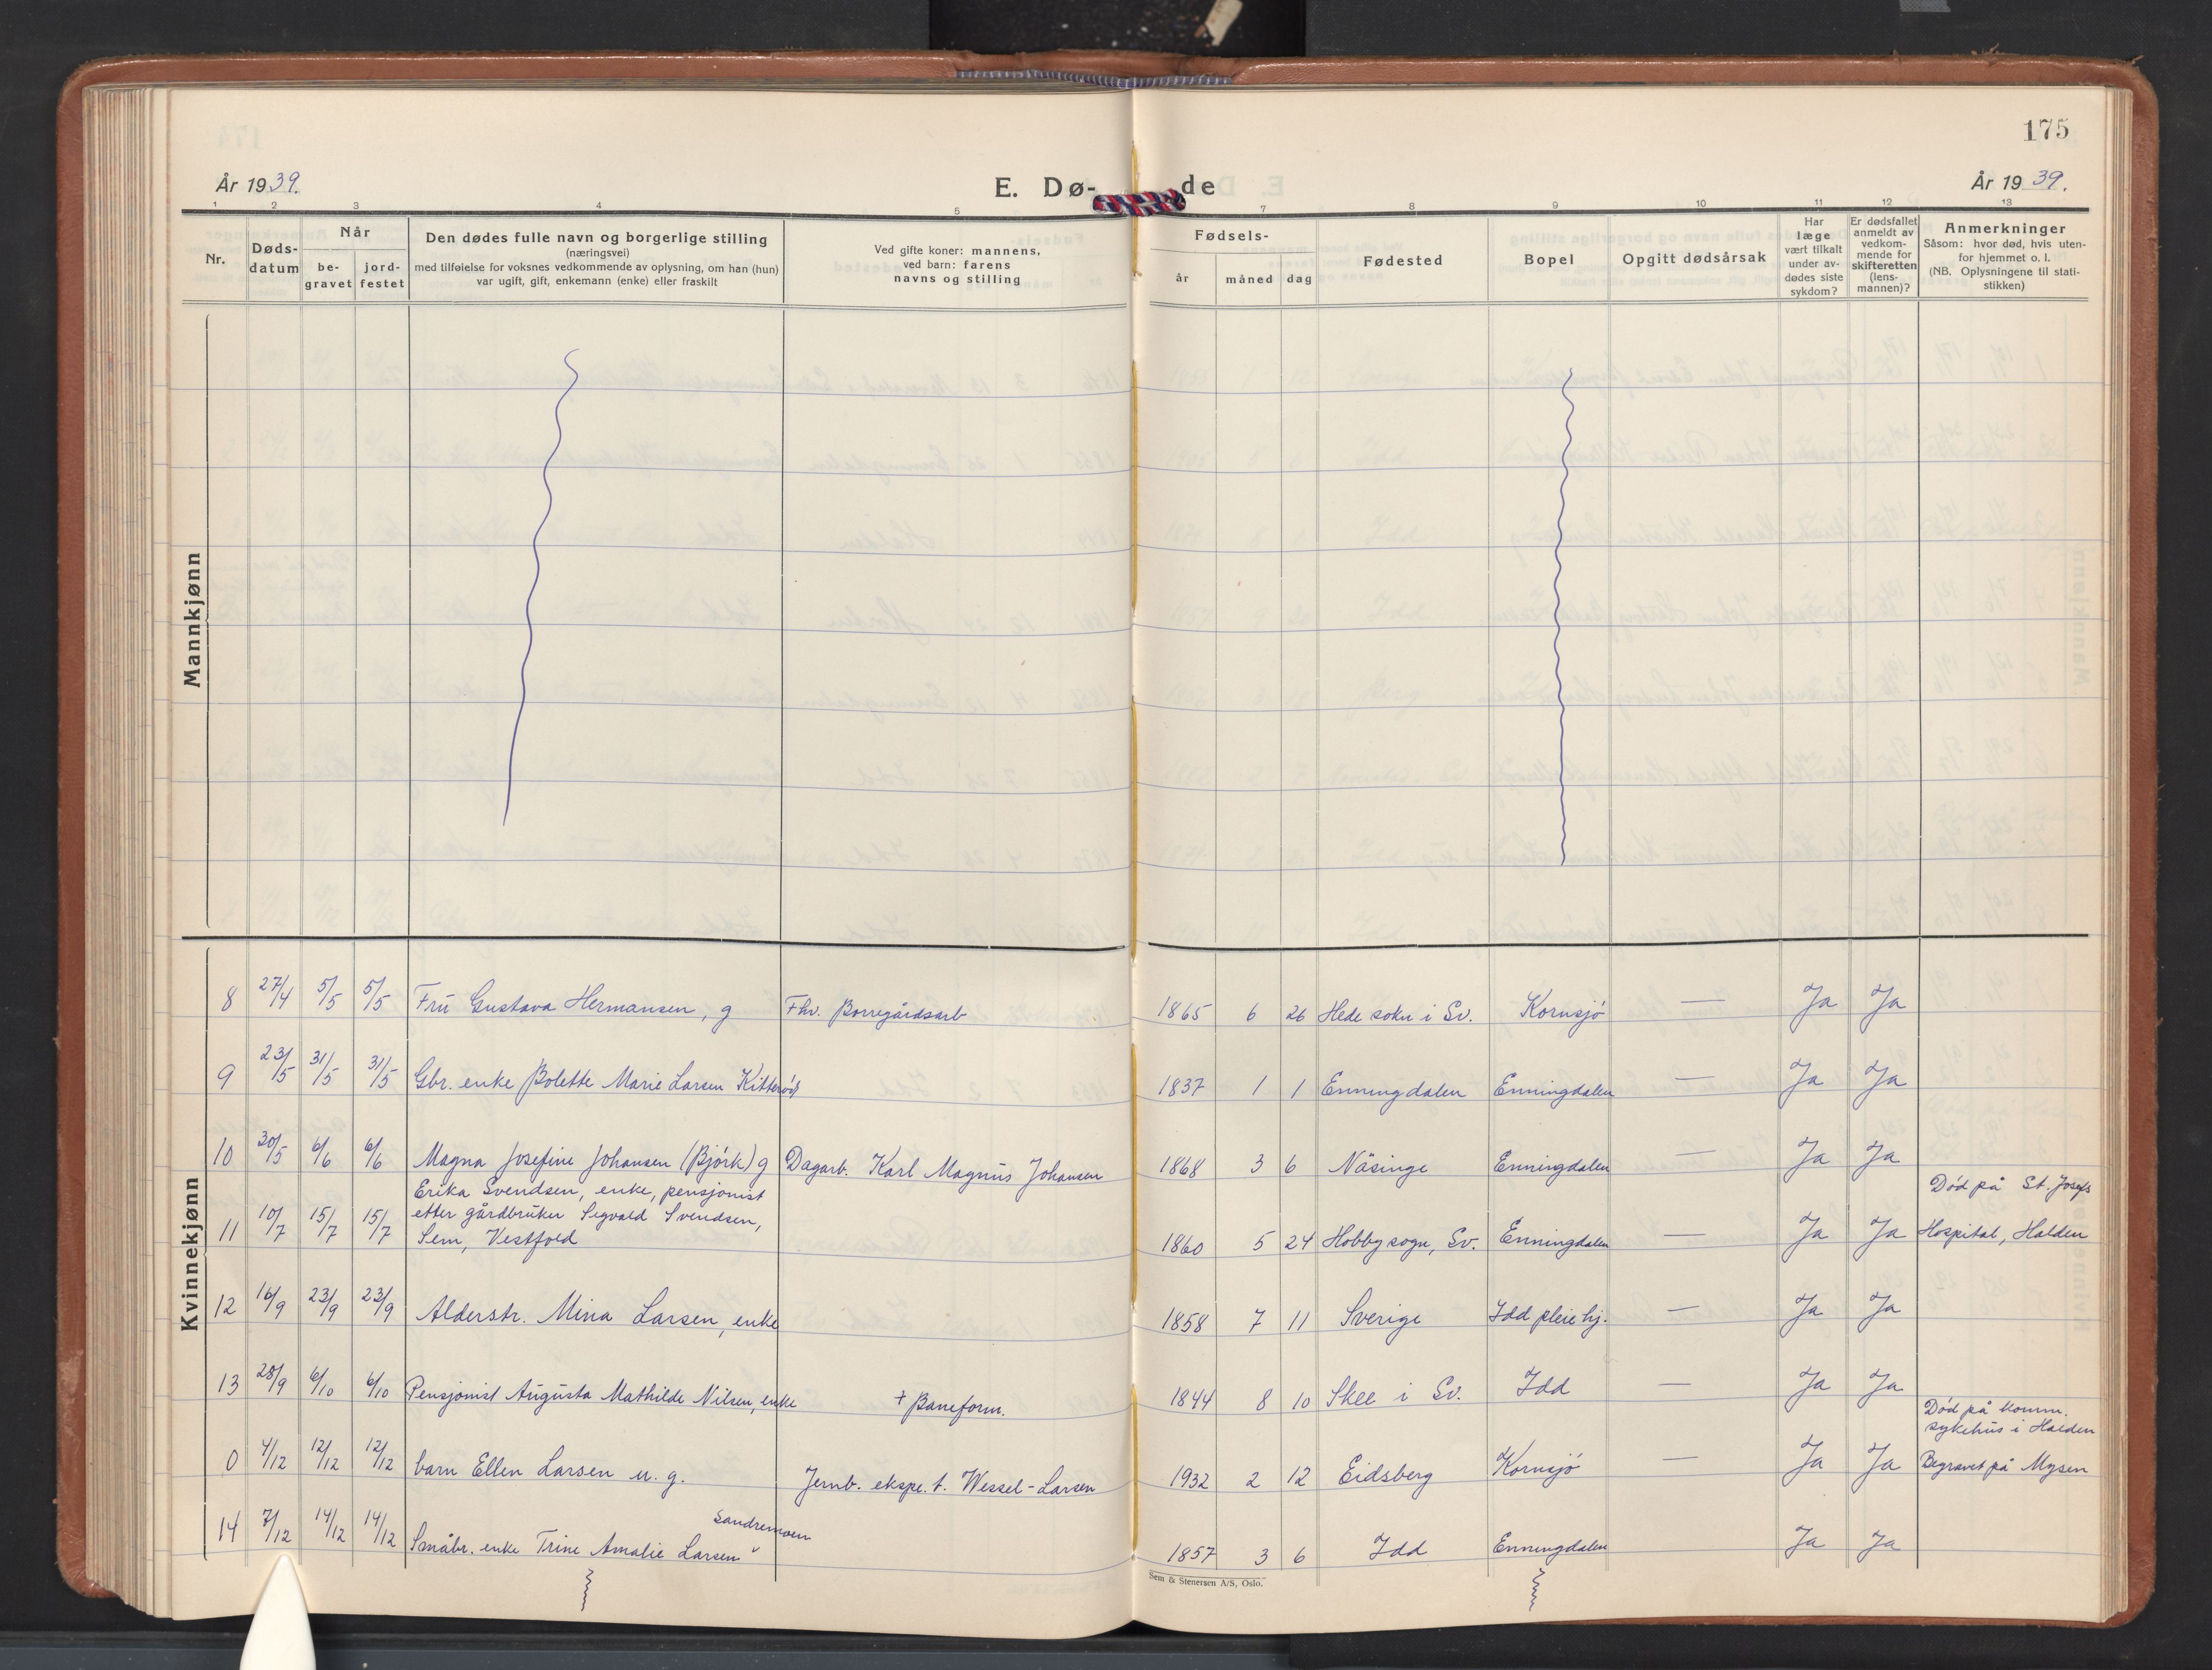 175
År 1939.
E. Dø-
de
År 1939.
1 2 3 4 5 7 8 9 10 11 12 13
Nr.
Døds-
datum
Når
be-
gravet
jord-
festet
Den dødes fulle navn og borgerlige stilling
(næringsvei)
med tilføielse for voksnes vedkommende av oplysning, om han (hun)
var ugift, gift, enkemann (enke) eller fraskilt
Ved gifte koner: mannens,
ved barn: farens
navns og stilling
Fødsels-
år måned dag
Fødested
Bopel
Opgitt dødsårsak
Har
læge
vært tilkalt
under av-
dødes siste
sykdom?
Er dødsfallet
anmeldt av
vedkom-
mende for
skifteretten
(lens-
mannen)?
Anmerkninger
Såsom: hvor død, hvis uten-
for hjemmet o. l.
(NB. Oplysningene til stati-
stikken)
Mannkjønn
Kvinnekjønn
8 27/4 5/5 5/5 Fru Gustava Hermansen, g Fhv. Borregårdsarb 1865 6 26 Hede sokn i Sv. Kornsjø — Ja Ja
9 23/5 31/5 31/5 Gbr. enke Bolette Marie Larsen Kitterød 1837 1 1 Enningdalen Enningdalen — Ja Ja
10 30/5 6/6 6/6 Magna Josefine Johansen (Bjørk) g Dagarb. Karl Magnus Johansen 1868 3 6 Näsinge Enningdalen — Ja Ja
Erika Svendsen, enke, pensjonist
Død på St. Josefs
11 10/7 15/7 15/7 etter gårdbruker Sigvald Svendsen,
Sem, Vestfold 1860 5 24 Hobby sogn, Sv. Enningdalen — Ja Ja Hospital, Halden
12 16/9 23/9 23/9 Alderstr. Mina Larsen, enke 1858 7 11 Sverige Idd pleiehj. — Ja Ja
13 28/9 6/10 6/10 Pensjonist Augusta Mathilde Nilsen, enke + Baneform. 1844 8 10 Skee i Sv. Idd — Ja Ja
Død på komm.
sykehus i Halden
0 4/12 12/12 12/12 barn Ellen Larsen u. g. Jernb. ekspe. t. Wessel-Larsen 1932 2 12 Eidsberg Kornsjø — Ja Ja Begravet på Mysen
Sandremoen
14 7/12 14/12 14/12 Småbr. enke Trine Amalie Larsen 1857 3 6 Idd Enningdalen Ja Ja
Sem & Stenersen A/S, Oslo.